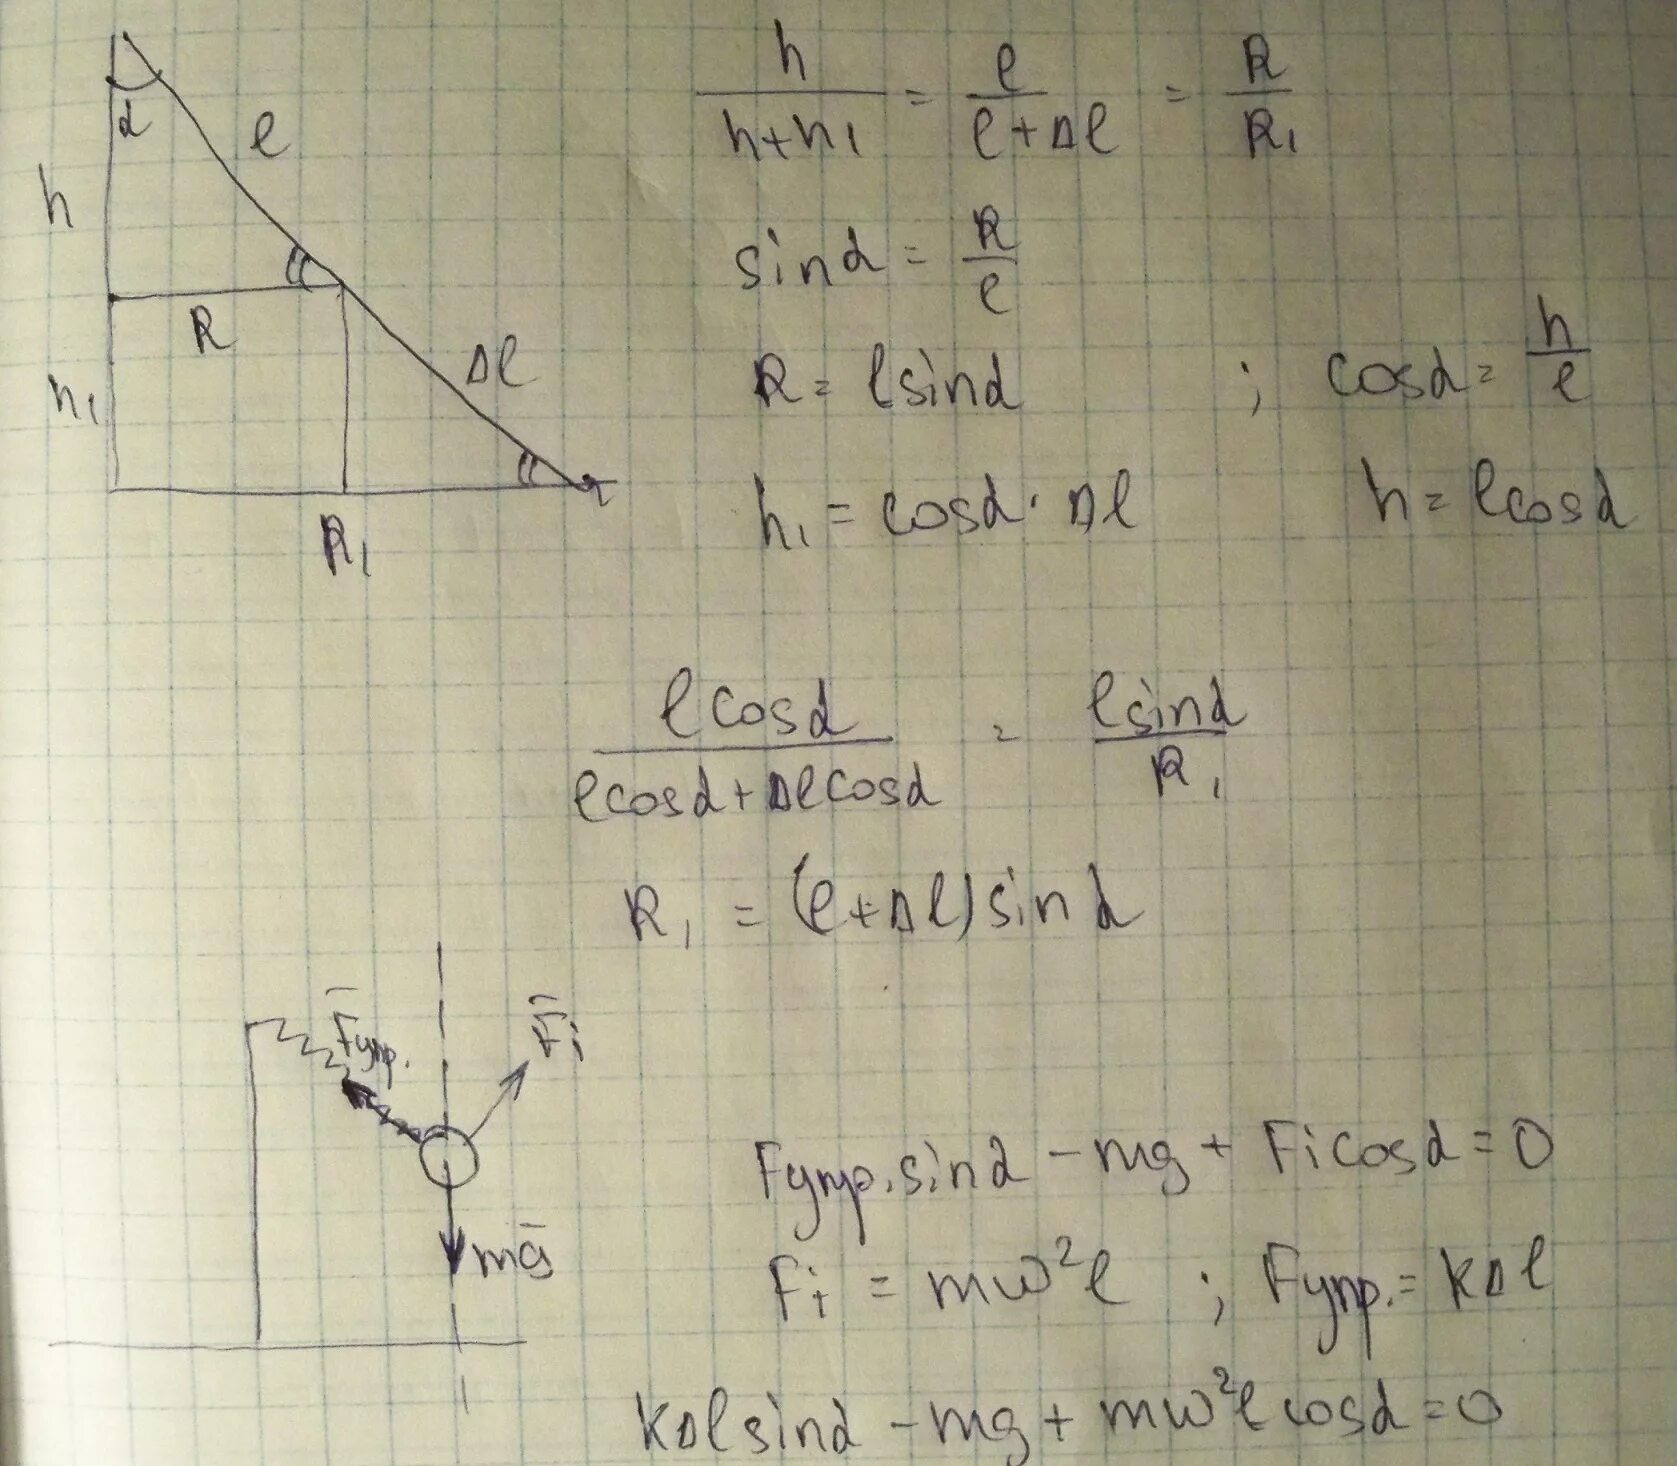 α
l
h
R
Δl
h₁
R₁
h/(h+h₁) = l/(l+Δl) = R/R₁
sinα = R/l
R = lsinα ; cosα = h/l
h₁ = cosα · Δl h = lcosα
lcosα/(lcosα+Δlcosα) = lsinα/R₁
R₁ = (l+Δl)sinα
Fупр.
Fi
mg
Fупр.sinα - mg + Ficosα = 0
Fi = mω²l ; Fупр. = kΔl
kΔlsinα - mg + mω²lcosα = 0